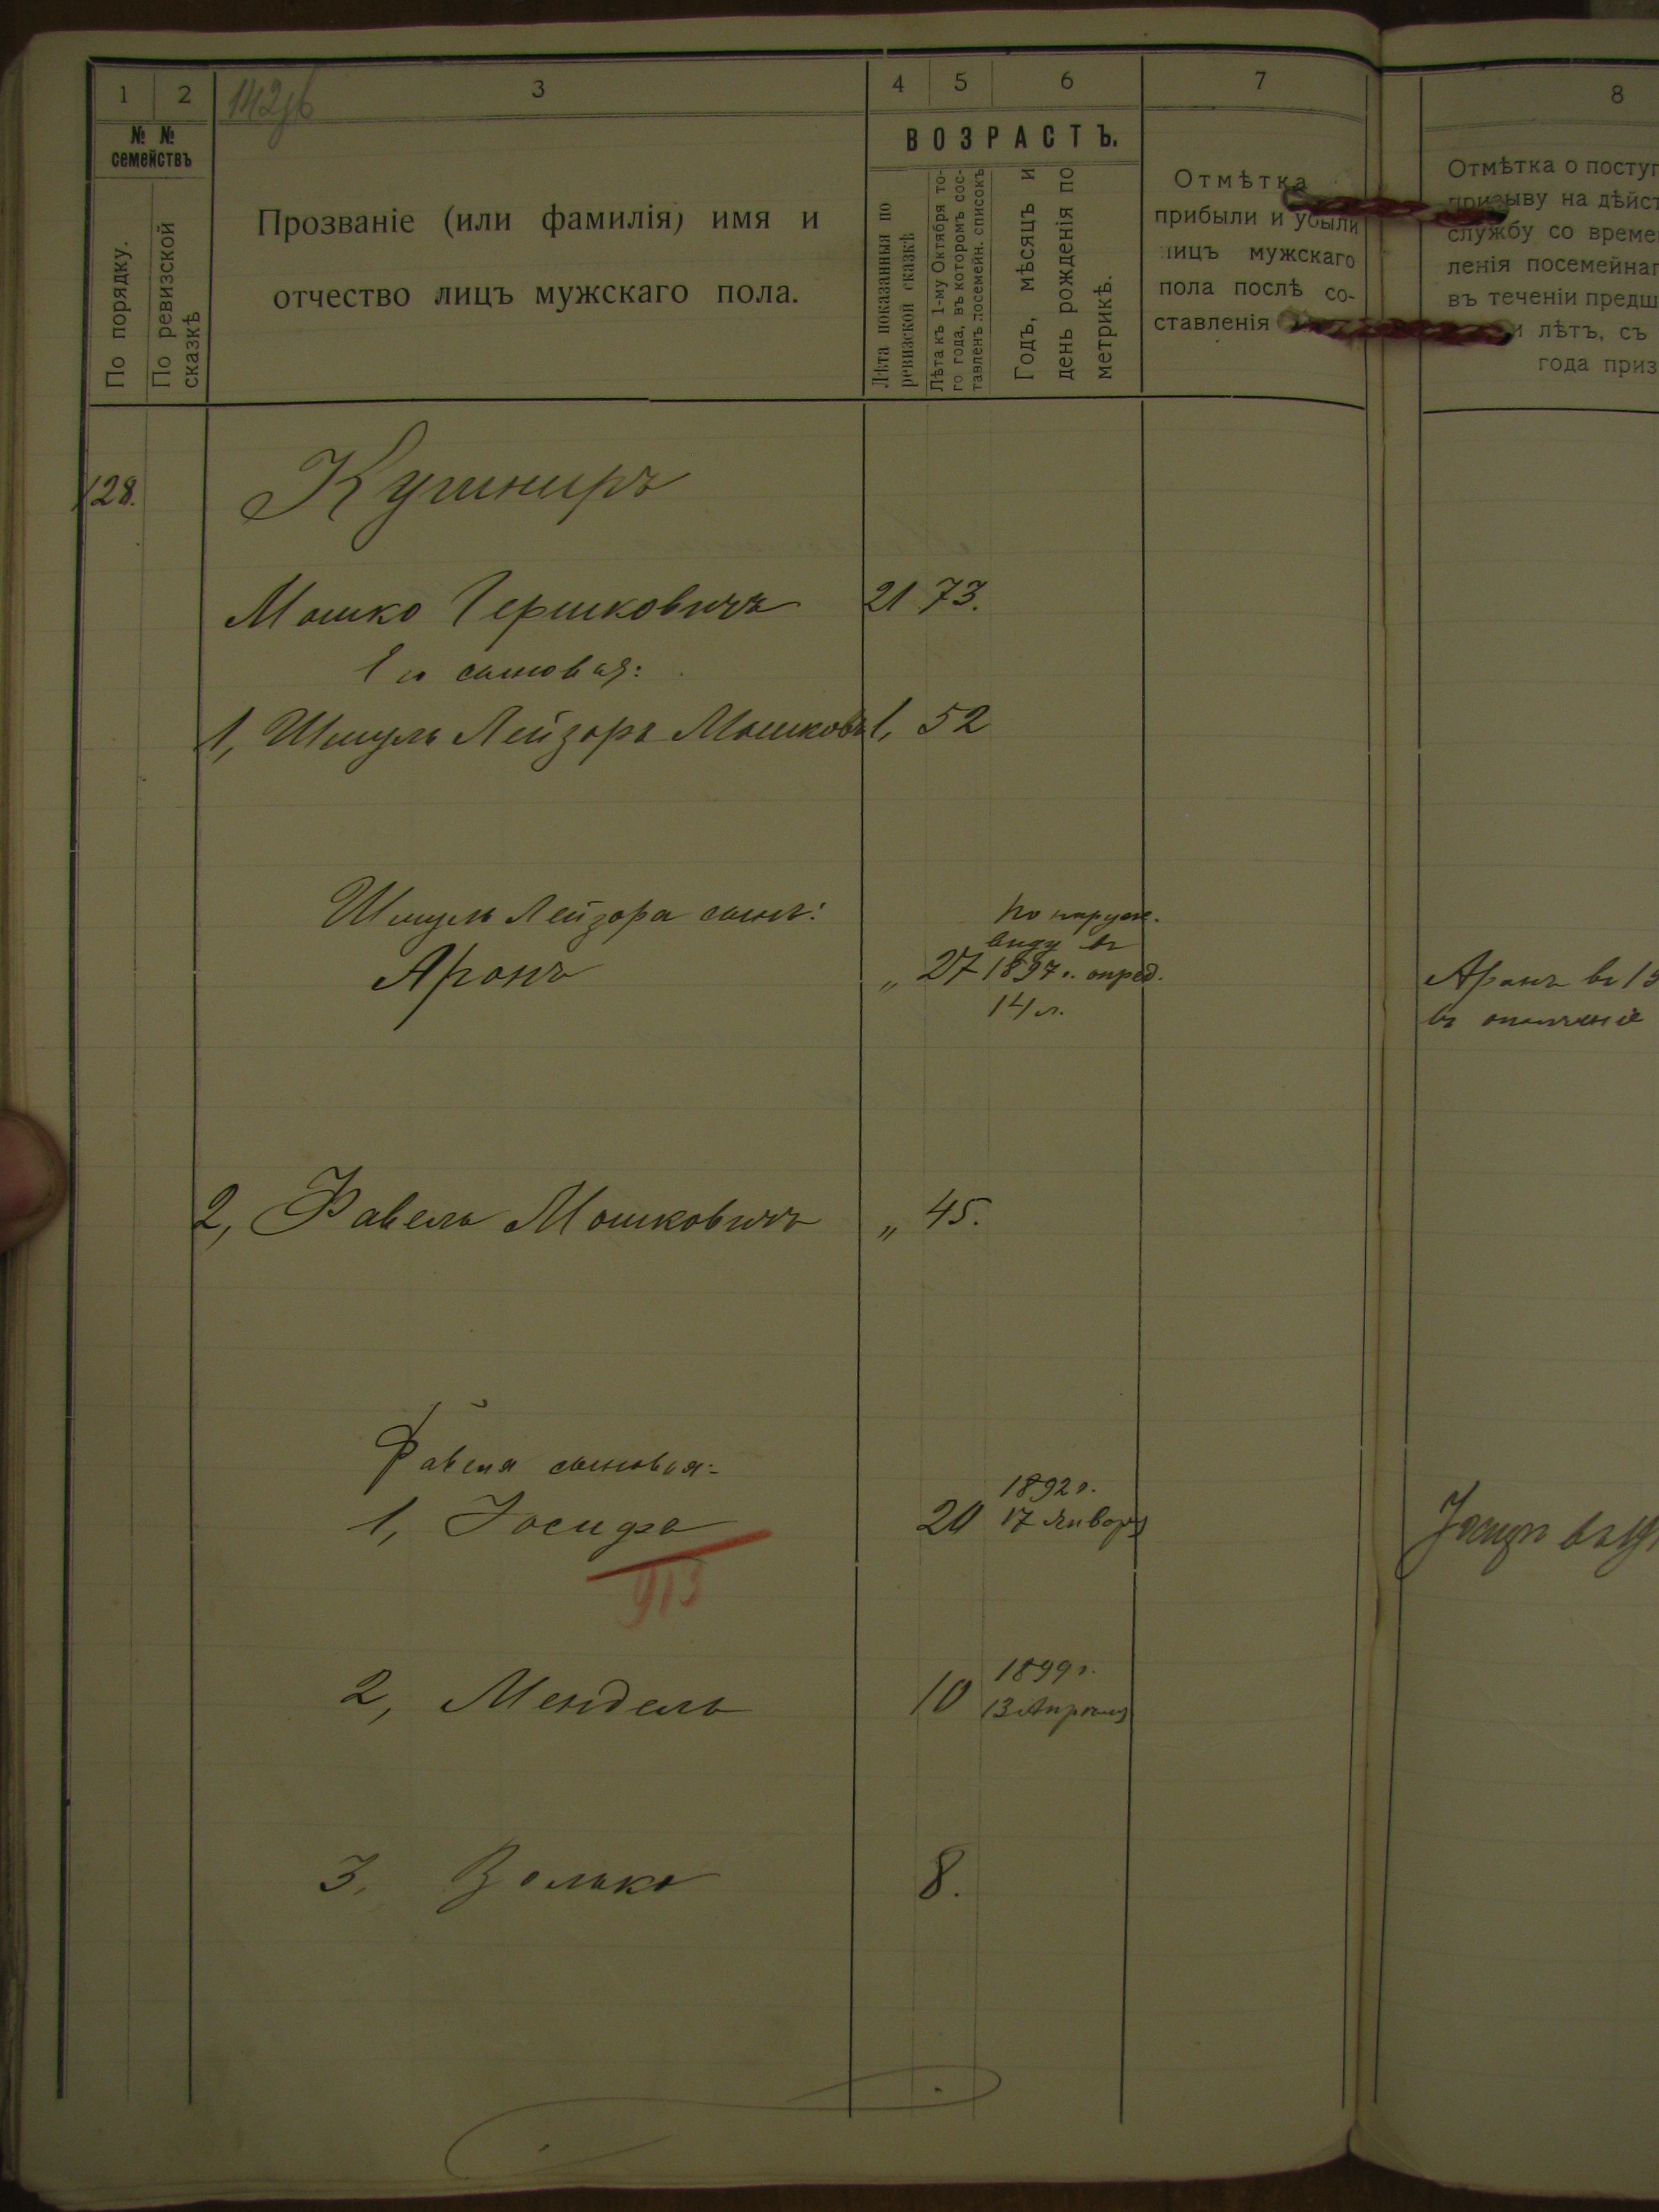 1 2 3 4 5 6 7 8
142
№ № семействъ
По порядку.
По ревизской сказкѣ
Прозваніе (или фамилія) имя и
отчество лицъ мужскаго пола.
ВОЗРАСТЪ.
Лѣта показанныя по
ревизской сказкѣ
Лѣта къ 1-му Октября то-
го года, въ которомъ сос-
тавленъ посемейн. списокъ
Годъ, мѣсяцъ и
день рожденія по
метрикѣ.
Отмѣтка
прибыли и убыли
лицъ мужскаго
пола послѣ со-
ставленія
Отмѣтка о поступ
призыву на дѣйст
службу со време
ленія посемейнаг
въ теченіи предш
и лѣтъ, съ
года приз
128. Кушниръ
Мошко Гершковичъ 21 73.
Его сыновья:
1, Шмуль Лейзоръ Мошков. 1, 52
Шмуль Лейзора сынъ:
Аронъ „ 27
по наружн.
виду въ
1897 г. опред.
14 л.
Аронъ въ 19
въ ополченіе
2, Фавель Мошковичъ „ 45.
Фавеля сыновья:
1, Іосифъ 20
1892 г.
17 Января
913
Іосифъ въ
2, Мендель 10
1899 г.
13 Апрѣля
3, Волько 8.